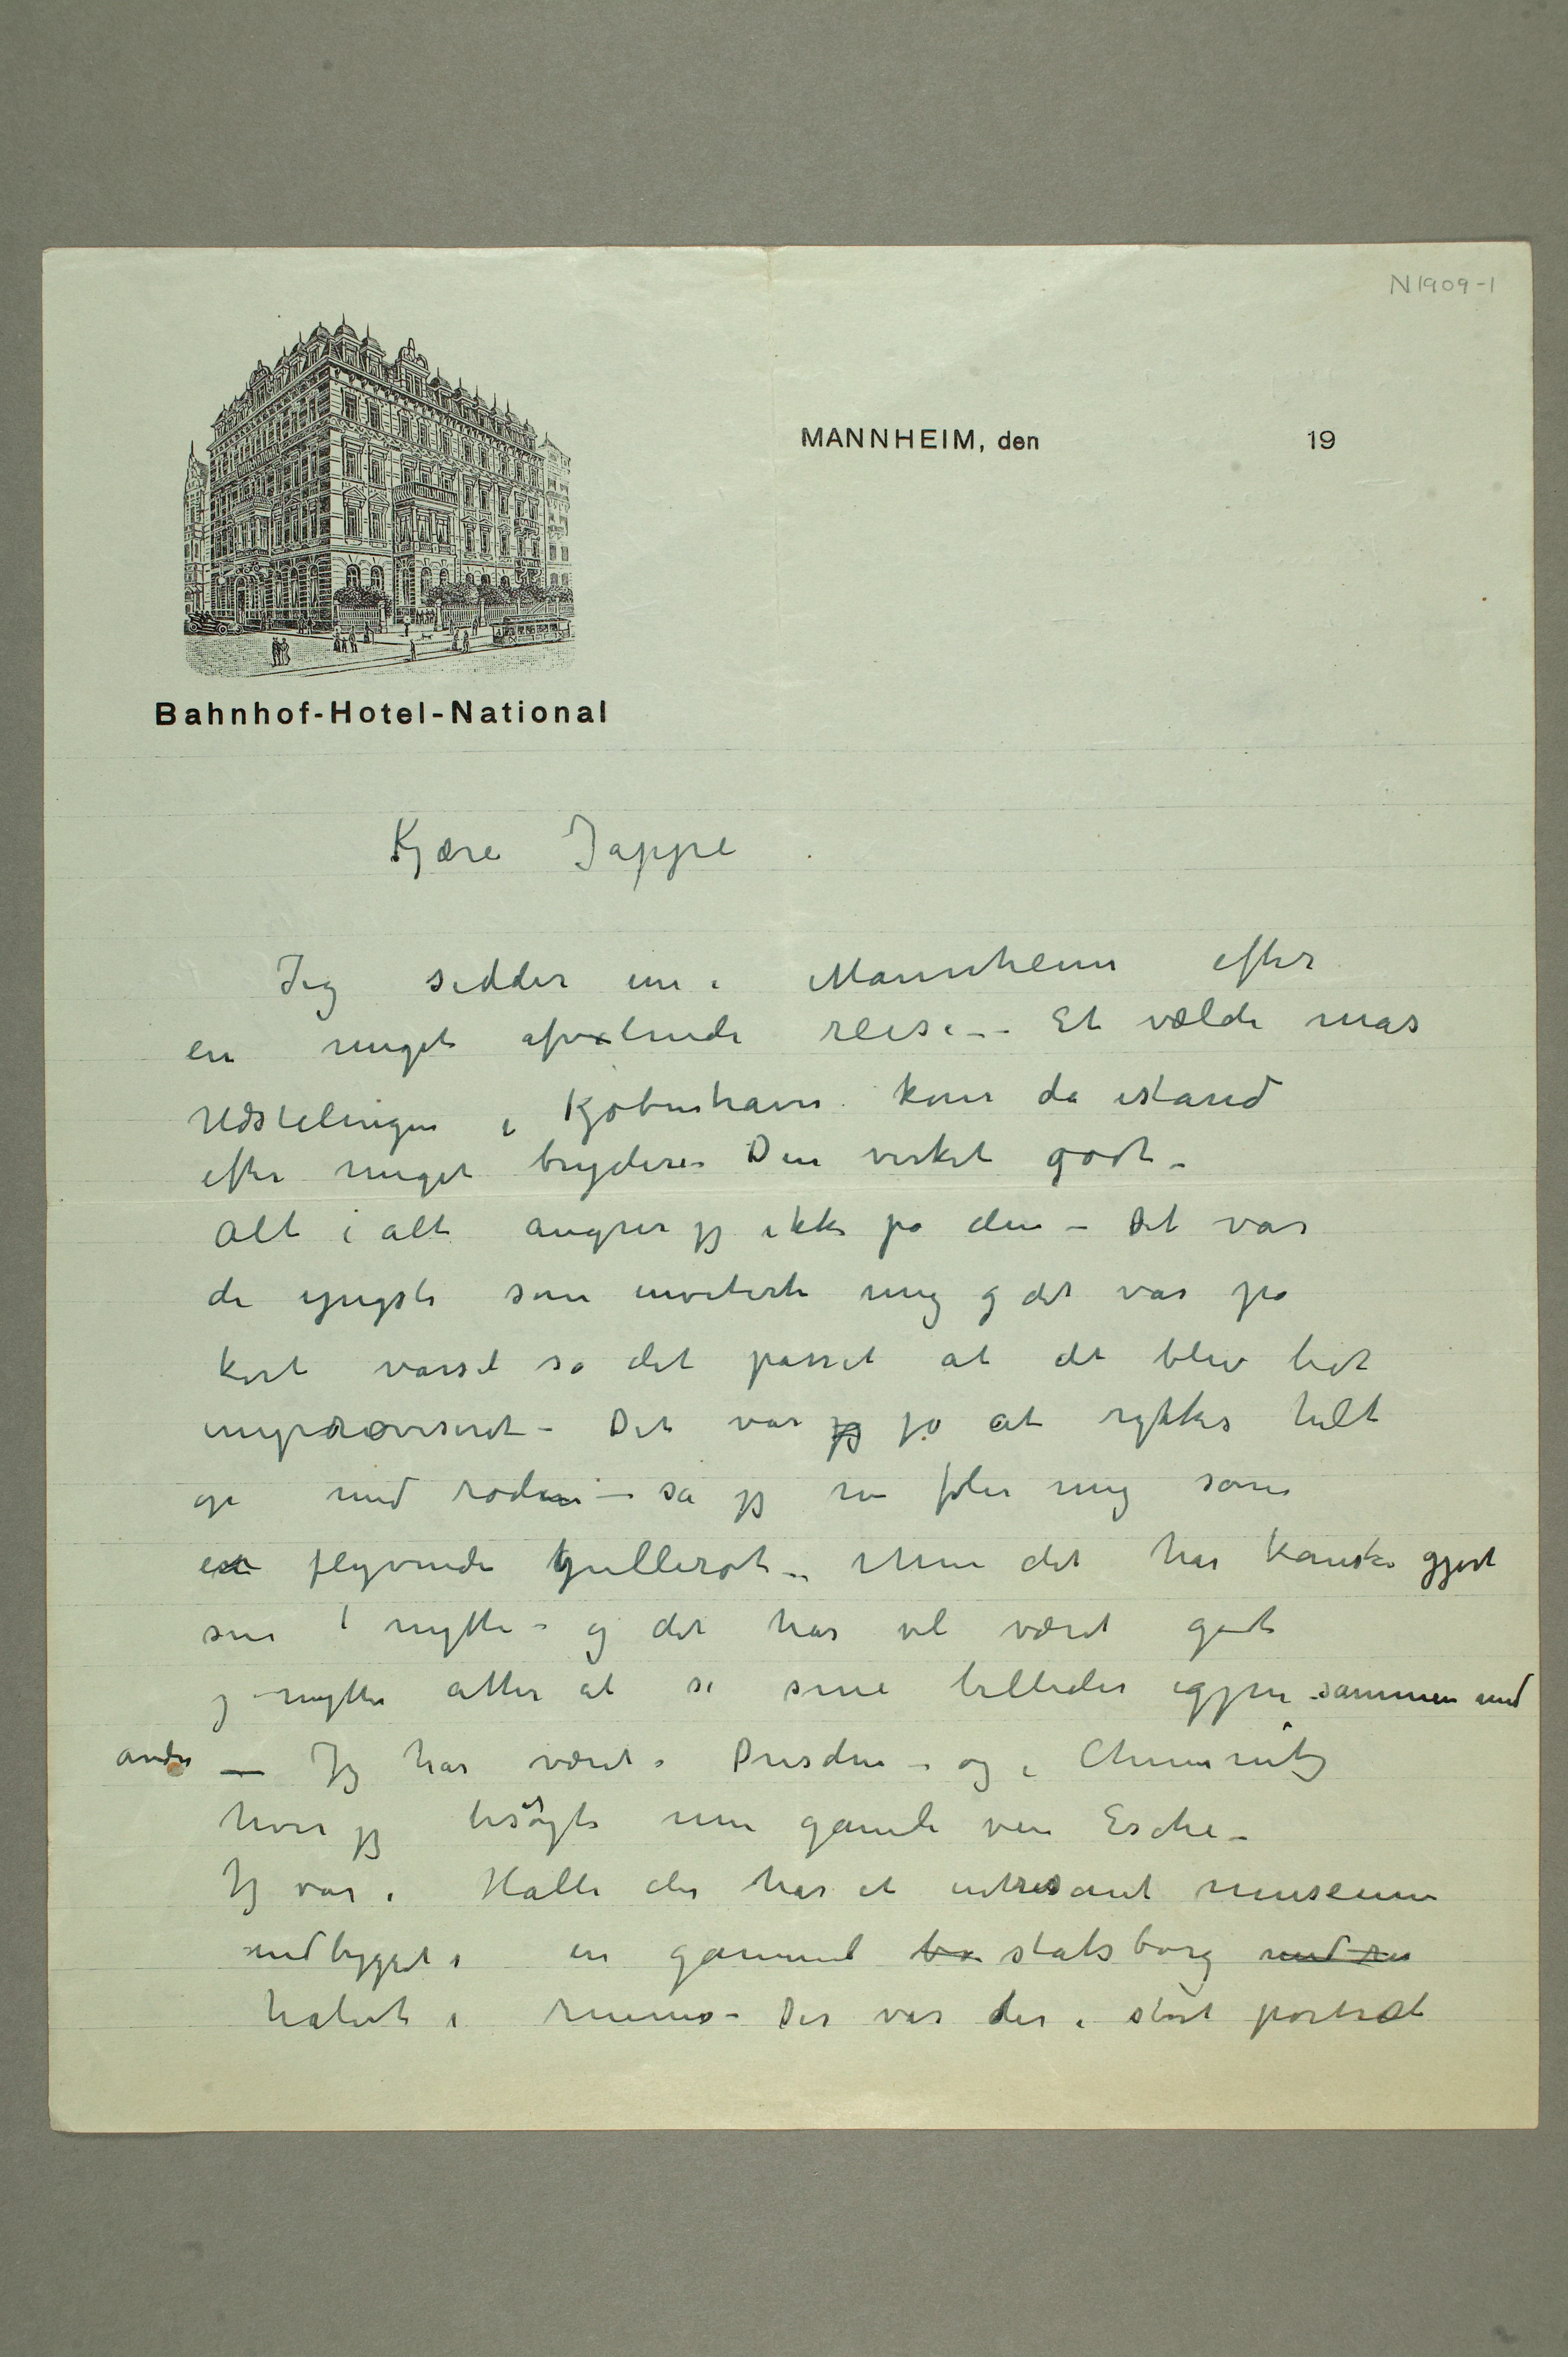 N1909-1
MANNHEIM, den 19
Bahnhof-Hotel-National
Kjære Jappe
Jeg sidder nu i Mannheim efter
en meget afvxlende reise – Et vælde mas
Udstelingen i Kjøbenhavn kom da istand
efter meget bryderi Den virket godt –
Alt i alt angrer jeg ikke på den – Det var
de yngste som inviterte mig og det var på
kort varsel så det passet at det blev lidt
improviseret – Det var jeg jo at rykkes helt
op med roden – så jeg nu føler mig som
en flyvende gullerot – Men det har kanske gjort
sin nytte – og det har vel været godt
og nyttig atter at se sine billeder igjen sammen med
andre — Jeg har været i Dresden – og i Chemnitz
hvor jeg besøgte min gamle ven Esche –
Jeg var i Halle der har et intresant museum
indbygget i en gammel bo statsborg med rui
halvt i ruiner – Der var der i stort portræt